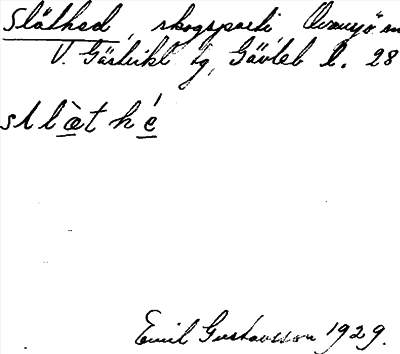 Slåthed, skogsparti Ovansjö sn
V. Gästrikl tg, Gävleb l. 28
sllæ̀t hé
Emil Gustavsson 1929.